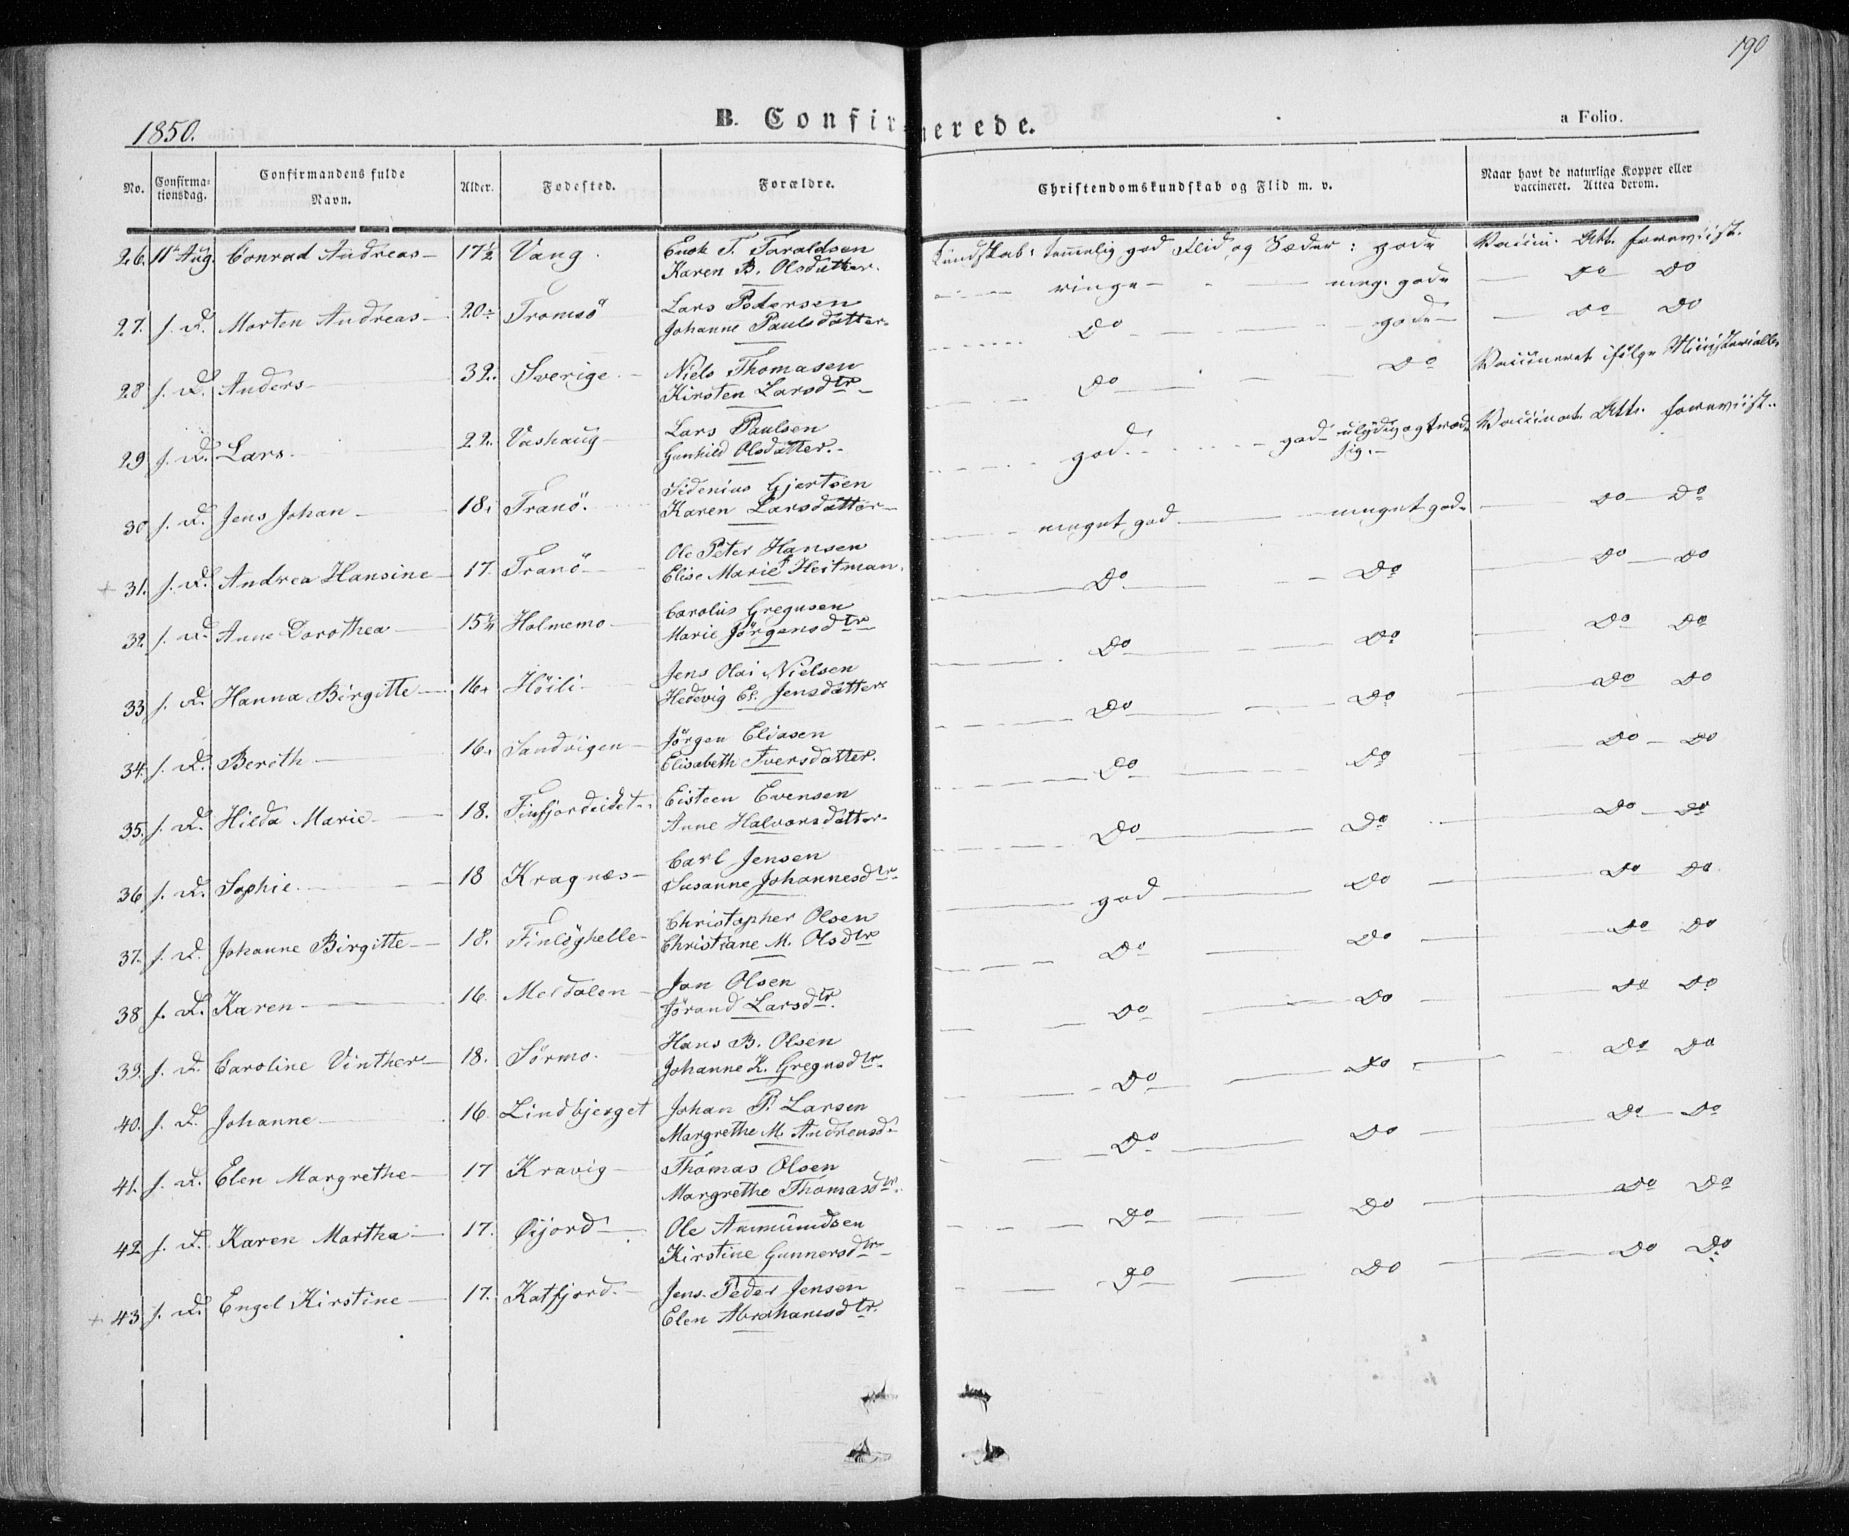 190
1850.
B. Confirmerede.
a Folio.
No.
Confirma-
tionsdag.
Confirmandens fulde
Navn.
Alder.
Fødested.
Forældre.
Christendomskundskab og Flid m. v.
Naar havt de naturlige Kopper eller
vaccineret. Attea derom.
26. 11te Aug. Conrad Andreas 17½ Vang. T. Taraldsen
Karen B. Olsdatter.
Kundskab: temmelig god Flid og Sæder: gode Vaccin. Att. foreviist.
27. s. D. Morten Andreas 20 Tromsö Lars Pedersen
Johanne Paulsdatter
ringe meg. gode Do Do
28 s. D. Anders 32. Sverige Niels Thomasen
Kirsten Larsdtr
Do gode Do Do
29 s. D. Lars 22. Vashaug Lars Paulsen
Gunhild Olsdatter.
Do Do Vaccineret ifölge
30 s. D. Jens Johan 18. Tranö. Sidenius Gjertsen
Karen Larsdatter
god. Vaccinat. Att. foreviist.
meget god meget gode Do Do
31. s. D. Andrea Hansine 17. Tranö Ole Peter Hansen
Elise Marie Heitman.
Do Do Do Do
32. s. D. Anne Dorothea 15¼ Holmemo Carolus Gregusen
Marie Jörgensdtr
Do Do Do Do
33 s. D. Hanna Birgitte 16. Höili Jens Olai Nielsen
Hedevig El. Jensdatter
Do Do Do Do
34. s. D. Berith 16. Sandvigen Jörgen Eliasen
Elisabeth Iversdatter.
Do Do Do Do
35. s. D. Hilda Marie 18. Finfjordeidet Eisteen Evensen
Anne Halvorsdatter
Do Do Do Do
36 s. D. Sophie 18 Kragnæs Carl Jensen
Susanne Johannesdtr
god Do Do Do
37. s. D. Johanne Birgitte 18. Christopher Olsen
Christiane M. Olsdtr
Do Do Do Do
38 s. D. Karen 16. Meldalen Jon Olsen
Jörand Larsdtr.
Do Do Do Do
39. s. D. Caroline Vinther 18. Sörmo. Hans B. Olsen
Johanne K. Gregusdtr
Do Do Do Do
40. s. D. Johanne 16. Lindbjerget Johan P. Larsen
Margrethe M. Andreasd.
Do Do Do Do
41. s. D. Elen Margrethe 17 Kravig Thomas Olsen
Margrethe Thomasdtr.
Do Do Do Do
42 s. D. Karen Martha 17. Öijord Ole Ammundsen
Kirstine Gunnersdtr
Do Do Do Do
+ 43. s. D. Engel Kirstine 17. Katfjord. Jens Peder Jensen
Elen Abrahamsdtr.